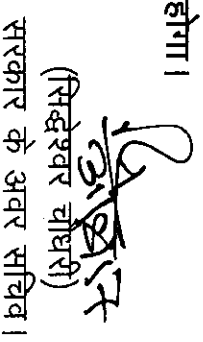 होगा।
(सिद्धेश्वर चौधरी)
सरकार के अवर सचिव।